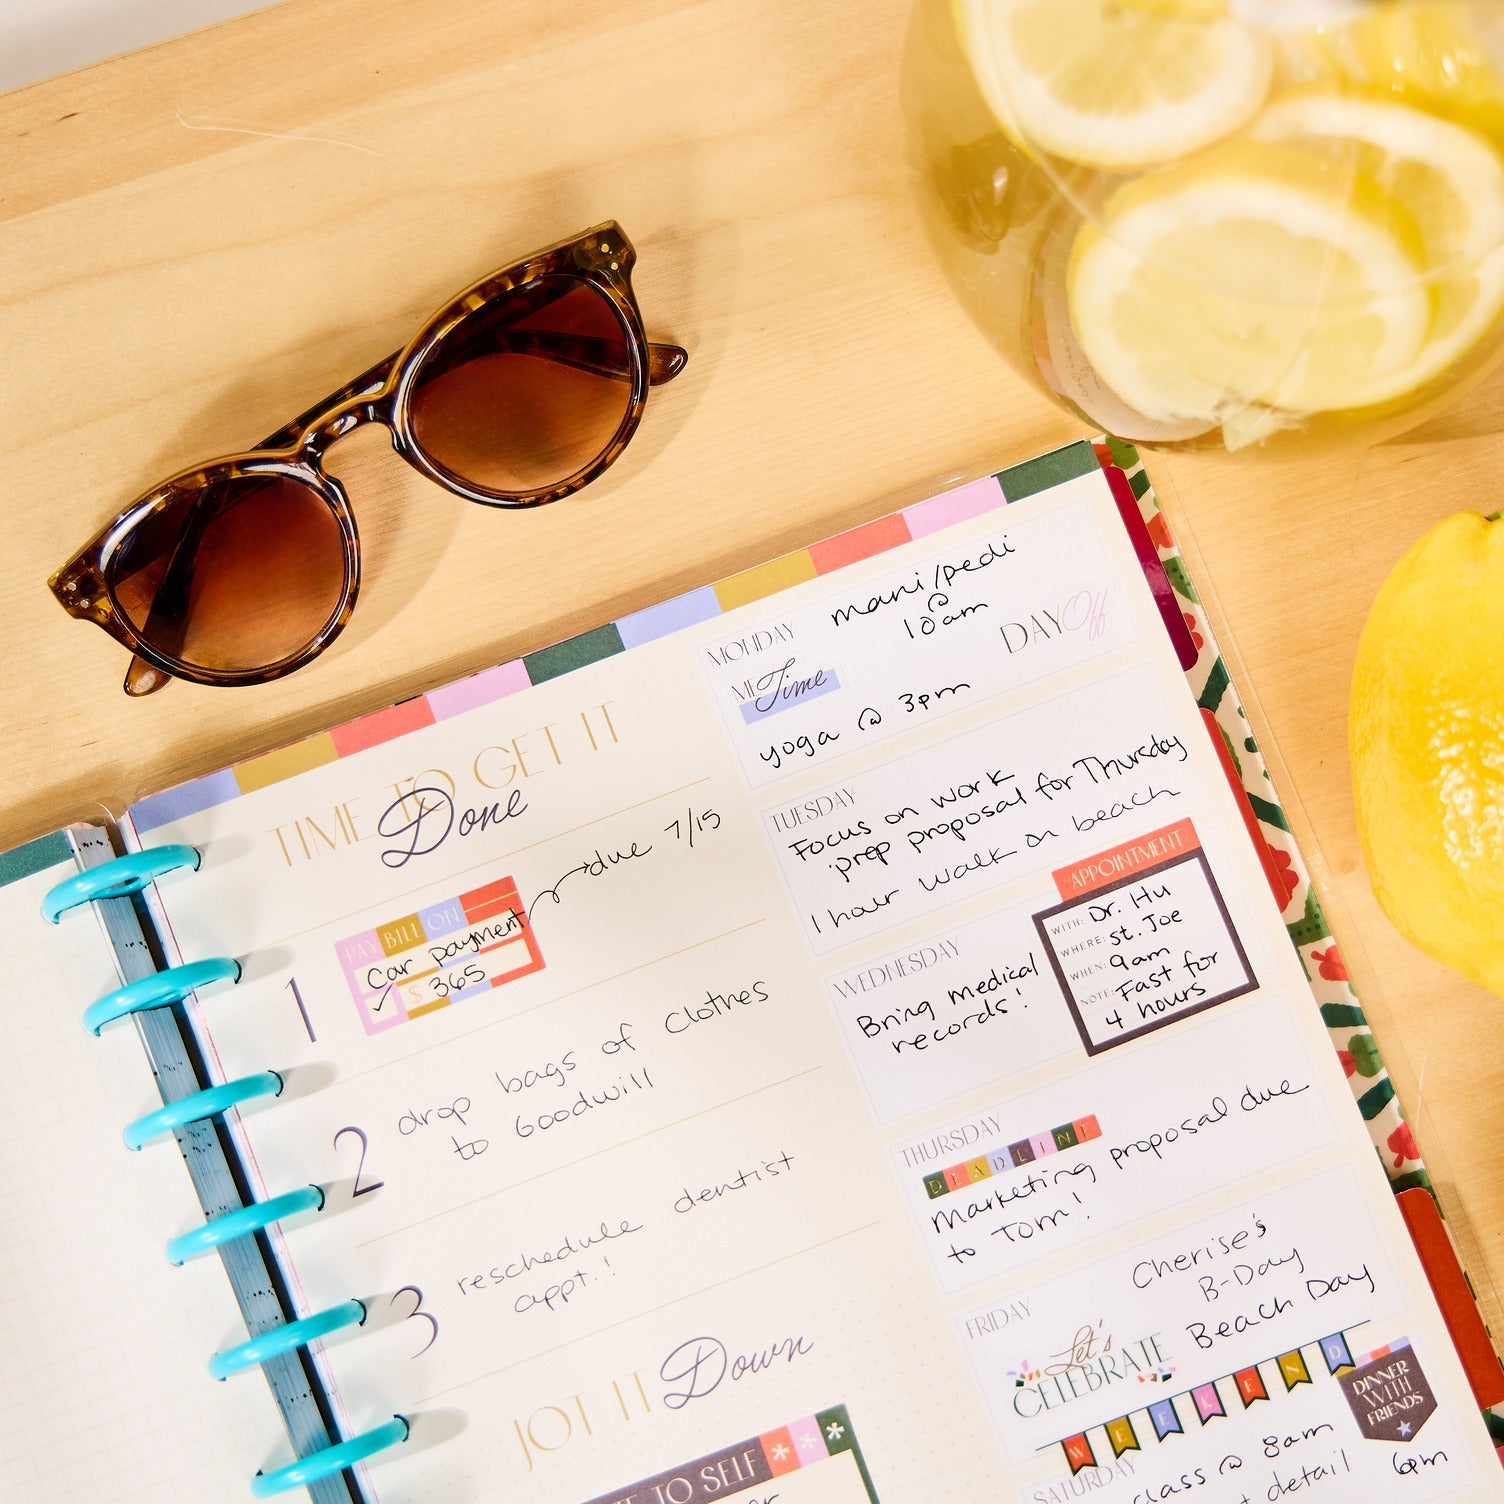 TIME TO GET IT
Done
1
PAY BILL ON
due 7/15
car payment
✓ $ 365
2
drop bags of clothes
to Goodwill
3
reschedule dentist
appt.!
JOT IT Down
TO SELF
MONDAY
mani/pedi
@
10am
DAY Off
ME Time
yoga @ 3pm
TUESDAY
Focus on work
prep proposal for Thursday
1 hour walk on beach
WEDNESDAY
Bring medical
records!
APPOINTMENT
WITH: Dr. Hu
WHERE: St. Joe
WHEN: 9am
NOTE: Fast for
4 hours
THURSDAY
DEADLINE
Marketing proposal due
to Tom!
FRIDAY
Cherise's
B-Day
Beach Day
Let's
CELEBRATE
WEEKEND
DINNER
WITH
FRIENDS
SATURDAY
class @ 8am
detail
6pm